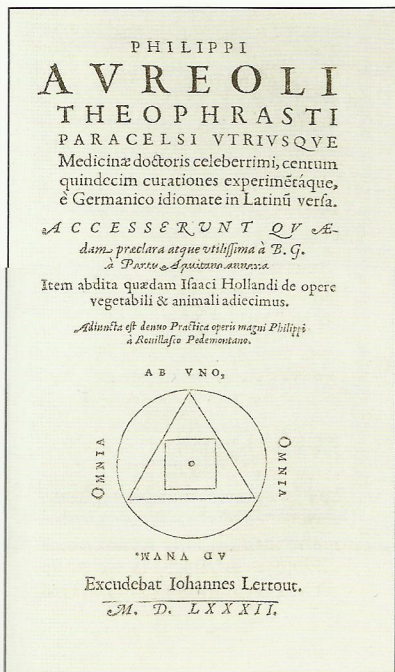 PHILIPPI
AVREOLI
THEOPHRASTI
PARACELSI VTRIVSQVE
Medicinæ doctoris celeberrimi, centum
quindecim curationes experimētáque,
è Germanico idiomate in Latinū versa.
ACCESSERUNT QVÆ-
dam præclara atque vtilissima à B. G.
à Portu Aquitano annexa
Item abdita quædam Isaaci Hollandi de opere
vegetabili & animali adiecimus.
Adiuncta est denuo Practica operis magni Philippi
à Rouillasco Pedemontano.
AB VNO,
OMNIA
OMNIA
AD VNVM.
Excudebat Iohannes Lertout.
M. D. LXXXII.